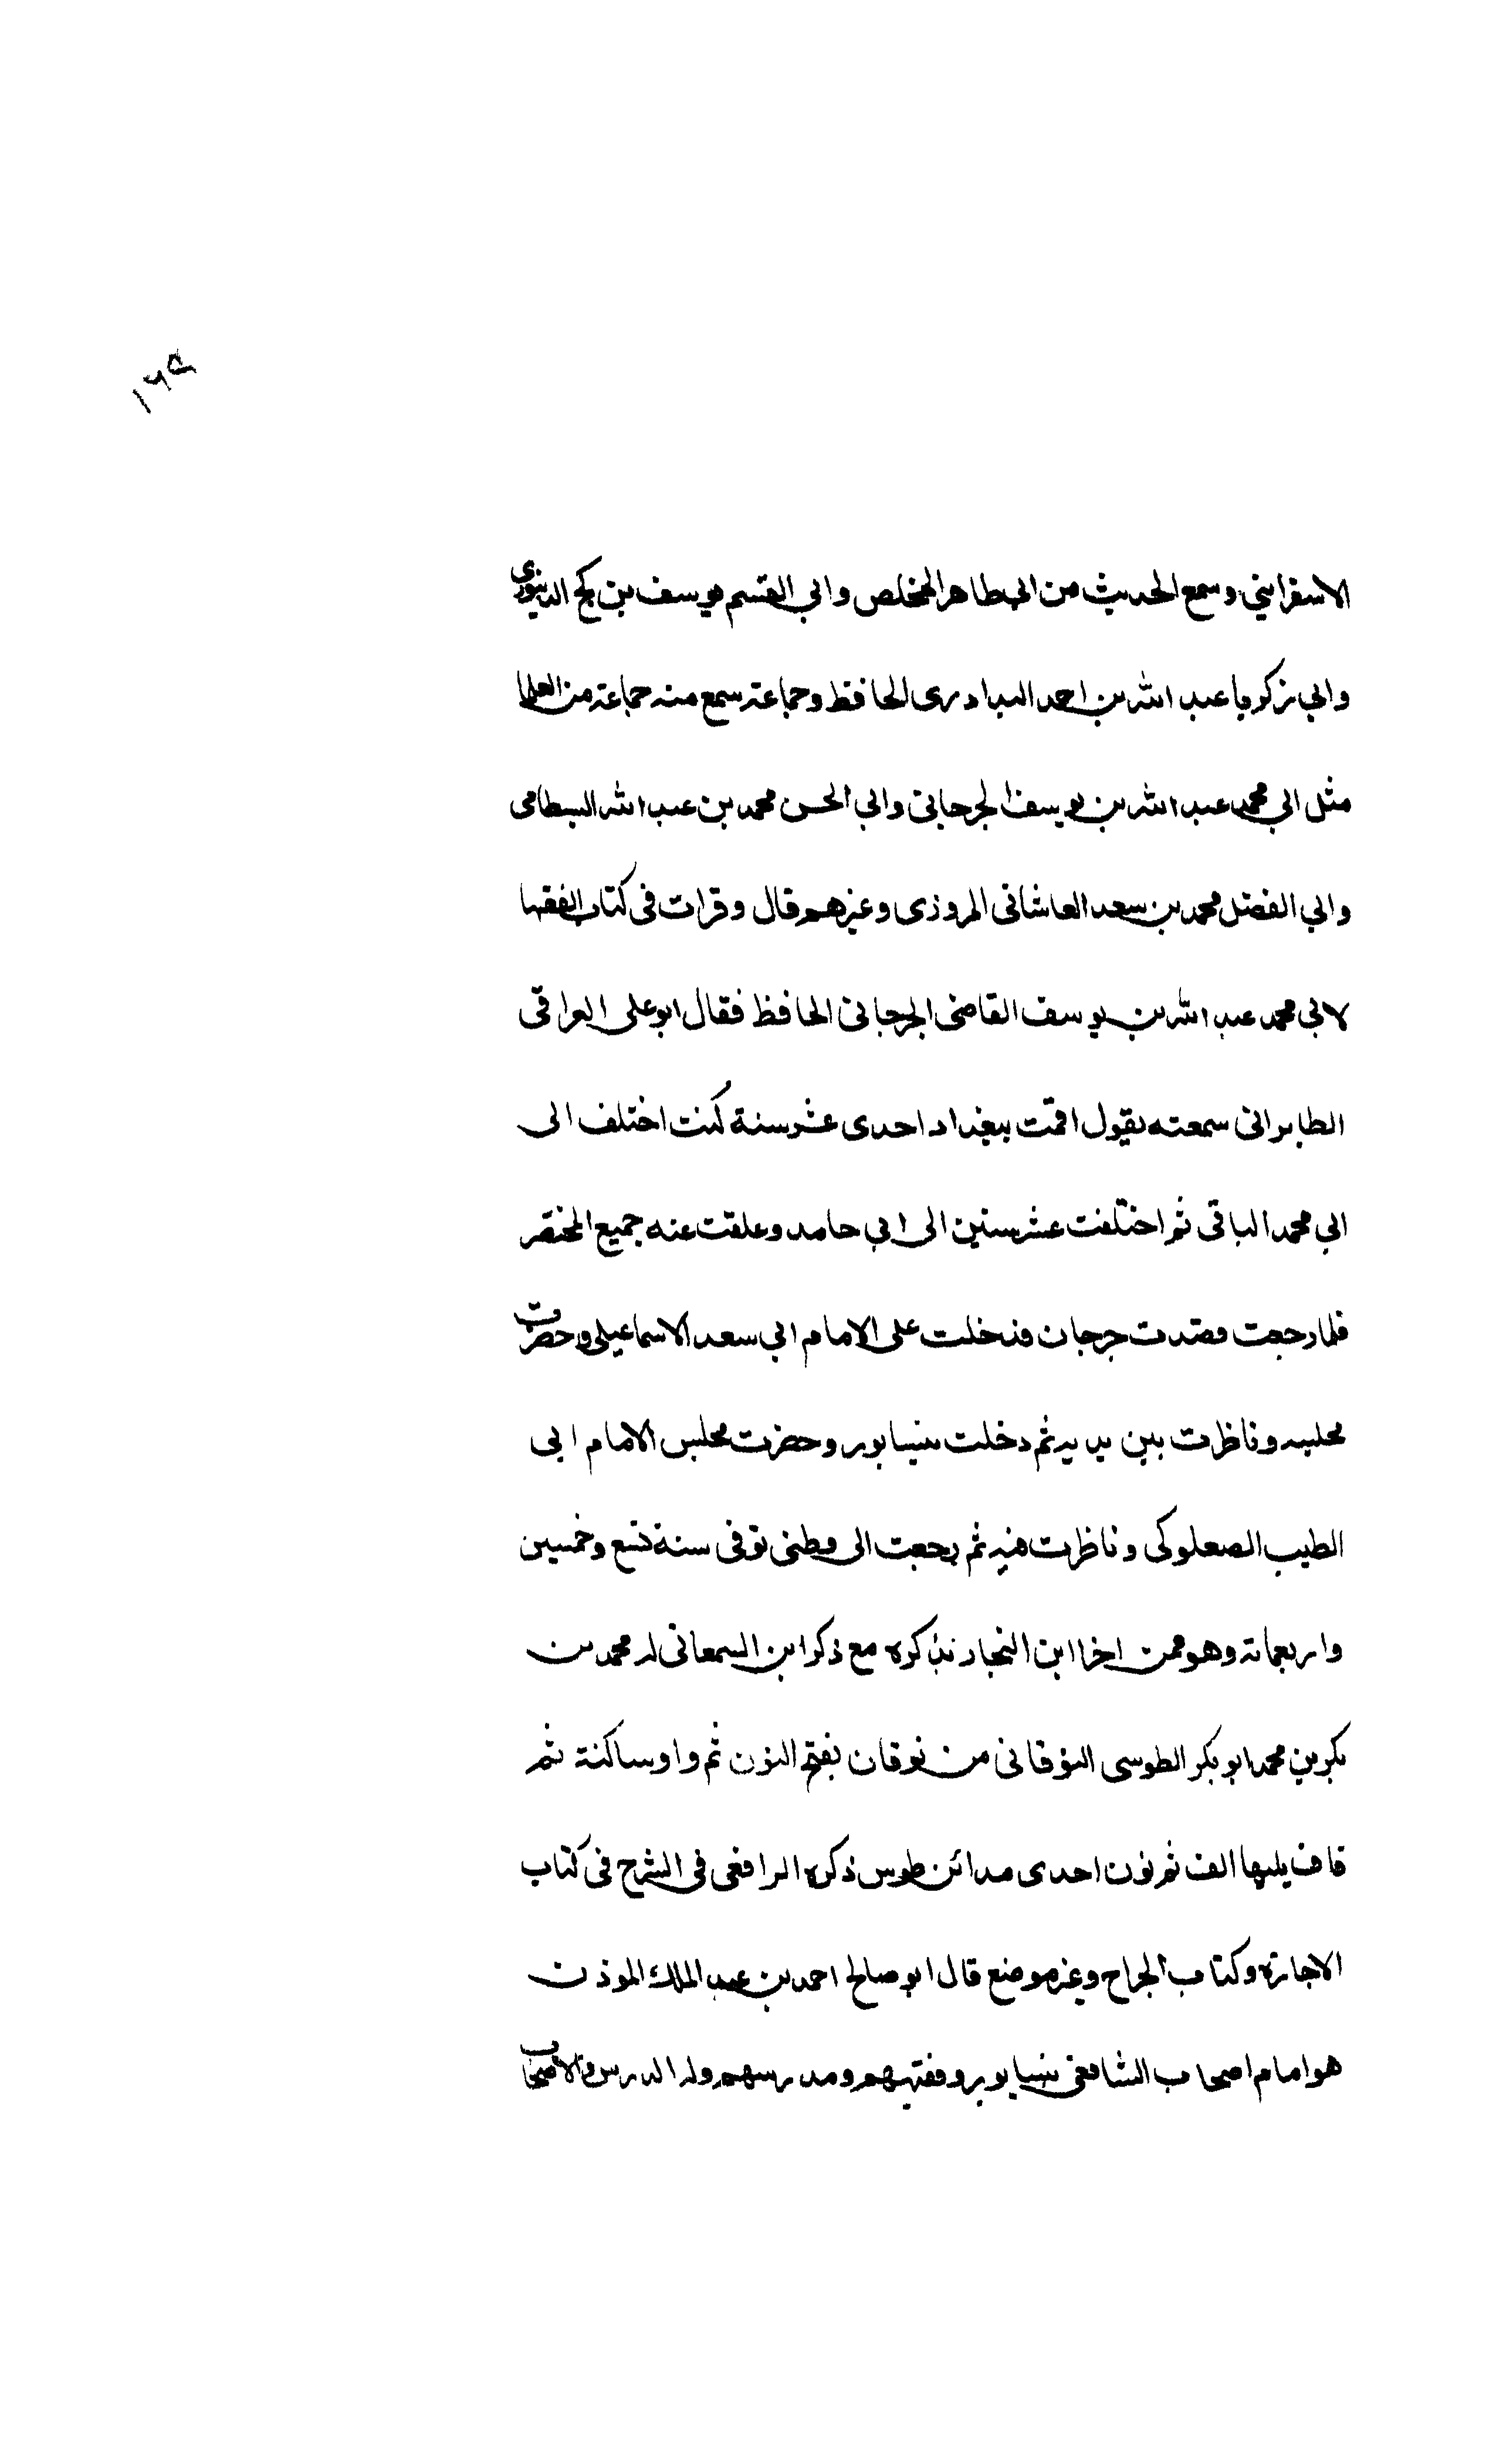 ١٦٩
الاسفرايني وسمع الحديث من ابي طاهر المخلص وابي القسم يوسف بن كج الدينوري
وابي زكريا عبد الله بن احمد البلادري الحافظ وجماعة سمع منه جماعة من العلما
مثل ابي محمد عبد الله بن يوسف الجرجاني وابي الحسن محمد بن عبد الله البسطامي
وابي الفضل محمد بن سعد العاشاني المروزي وغيرهم قال وقرات في كتاب الفقها
لابي محمد عبد الله بن يوسف القاضي الجرجاني الحافظ فقال ابو علي العراقي
الطابراني سمعته يقول اقمت ببغداد احدى عشر سنة كنت اختلف الى
ابي محمد الباقي ثم اختلفت عشر سنين الى ابي حامد وعلقت عنه جميع المختصر
فلما رجعت قصدت جرجان فدخلت على الامام ابي سعد الاسماعيلي وحضرت
مجلسه وناظرت بين يديه ثم دخلت نيسابور وحضرت مجلس الامام ابي
الطيب الصعلوكي وناظرت فيه ثم رجعت الى وطني توفي سنة تسع وخمسين
واربعماية وهو ممن اخل ابن النجار بذكره مع ذكر ابن السمعاني له محمد بن
بكر بن محمد ابو بكر الطوسي النوقاني من نوقان بفتح النون ثم واو ساكنة ثم
قاف يليها الف ثم نون احدى مدائن طوس ذكره الرافعي في الشرح في كتاب
الاجازه وكتاب الجراح وغير موضع قال ابو صالح احمد بن عبد الملك الموذن
هو امام اصحاب الشافعي بنيسابور وفقيههم ومدرسهم وله الدرس والاصحاب